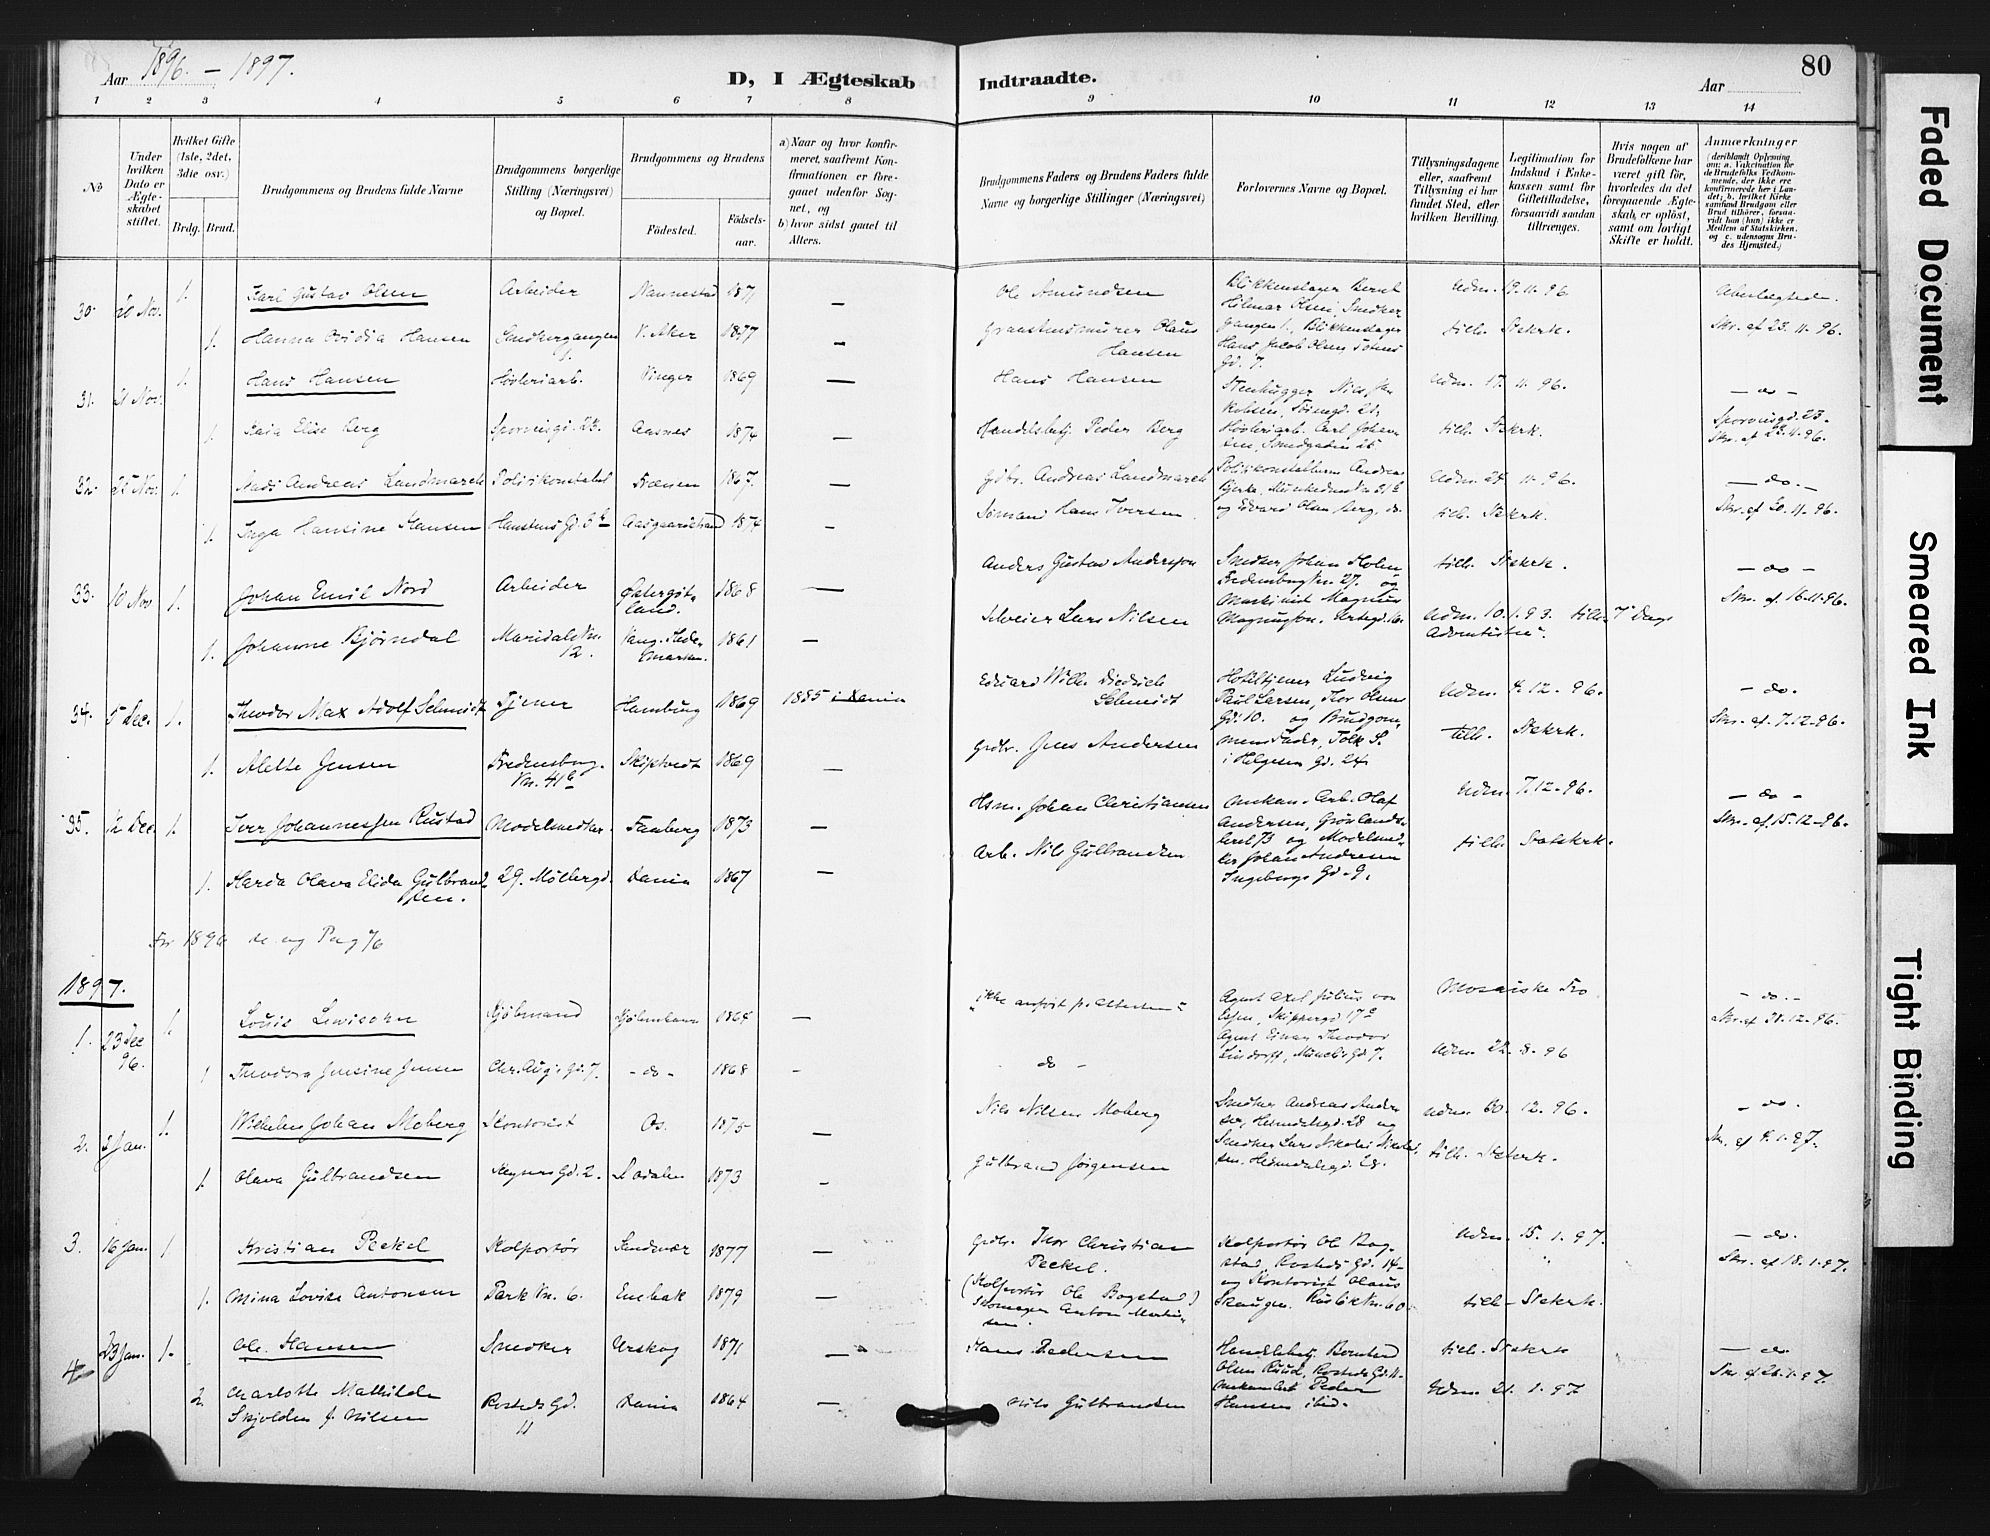 Aar 1896. – 1897.
D, I Ægteskab
Indtraadte.
Aar
80
1 2 3 4 5 6 7 8
9 10 11 12 13 14
No
Under hvilken Dato er Ægteskabet stiftet.
Hvilket Gifte (1ste, 2det, 3die osv.)
Brdg. Brud.
Brudgommens og Brudens fulde Navne
Brudgommens borgerlige Stilling (Næringsvei) og Bopæl.
Brudgommens og Brudens
Födested.
Födsels-aar.
a) Naar og hvor konfirmeret, saafremt Konfirmationen er foregaaet udenfor Sognet, og
b) hvor sidst gaaet til Alters.
Brudgommens Faders og Brudens Faders fulde Navne og borgerlige Stillinger (Næringsvei)
Forlovernes Navne og Bopæl.
Tillysningsdagene eller, saafremt Tillysning ei har fundet Sted, efter hvilken Bevilling.
Legitimation for Indskud i Enkekassen samt for Giftetilladelse, forsaavidt saadan tiltrænges.
Hvis nogen af Brudefolkene har været gift før, hvorledes da det foregaaende Ægteskab, er opløst, samt om lovligt Skifte er holdt.
Anmærkninger
(deriblandt Oplysning om: a. Vakcination for de Brudefolks Vedkommende, der ikke ere konfirmerede her i Landet; b. hvilket Kirkesamfund Brudgom eller Brud tilhører, forsaavidt han (hun) ikke er Medlem af Statskirken, og c. udensogns Brudes Hjemsted.)
30. 20 Nov. 1. Karl Gustav Olsen Arbeider Nannestad 1871 —
Ole Amundsen Blikkenslager Bernt Hilmar Olsen, Smedkergangen 1, Blikkenslager Hans Jacob Olsen Udm. 19.11.96.
1. Hanna Ovidia Hansen Smedkergangen 1. V. Aker 1877 —
Granstensmurer Olaus Hansen tilh. Statskrk. Skr. af 23.11.96.
31. 21 Nov. 1. Hans Hansen Høvleriarb. Vinger 1869 —
Hans Hansen Stenhugger Udm. 17.11.96. — do —
1. Kaia Elise Berg Sporveisgd. 23. Aasnes 1874 —
Handelsbetj. Peder Berg Høvleriarb. Carl tilh. Statskrk. Sporveisgd. 23.
32. 25 Nov. 1. Mads Andreas Landmarck Politikonstabel Frænen 1867. —
Gdbr. Andreas Landmarck Politikonstablerne Andreas Bjerke, og Edvard Olsen Berg, do. Udm. 24.11.96. — do. —
1. Inga Hansine Hansen Hanstens Gd. 5 b Aasgaardstrand 1874 —
Sømand Hans Iversen tilh. Statskrk. Skr. af 30.11.96.
33. 10 Nov 1. Johan Emil Nord Arbeider Østergötland. 1868 —
Anders Gustav Andersson Smedsv. Johan Holm Fredensborgvn. 27. og Maskinist Magnus Magnusson. tilh. Statskrk. — do —
1. Johanne Bjørndal Maridalsvn. 12. Vang. Hedemarken. 1861 —
Selveier Lars Nilsen Udm. 10.1.93. tilh. "7 Dags Adventister". Skr. af 16.11.96.
34. 5 Dec. 1. Theodor Max Adolf Schmidt Tjener Hamburg 1869 1885 i Xania
Eduard Wilh. Diedrich Schmidt Hoteltjener Ludvig Paul Larsen, Thor Olsens Gd. 10. og Brudgommens Fader, Tolk S. i Helgesens Gd. 24. Udm. 4.12.96. — do.
1. Alette Jensen Fredensborgvn. 41 b Skiptvedt 1869 —
Gdbr. Jens Andersen tilh. Statskrk. Skr. af 7.12.96.
35. 12 Dec. 1. Iver Johannessen Rustad Modelsnedker. Faaberg 1873 —
Hsm. Johan Christiansen Mekan. Arb. Olaf Andersen, Grønlandsleret 73 og Modelsnedker Johan Andresen Ingeborgs Gd. 9. Udm. 7.12.96. — do —
1. Harda Olava Elida Gulbrandssen. 29. Møllergd. Xania 1867 —
Arb. Nils Gulbrandsen tilh. Statskrk. Skr. af 15.12.96.
For 1896 se og Pag 76
1897.
1. 23 Dec 96. 1. Louis Lewisohn Kjøbmand Kjøbenhavn 1864 —
"ikke anført p. Attesten" Agent Axel Julius von Essen, Skippergd 17 Agent Einar Theodor Lindorff, Munchs Gd 7. Mosaiske Tro — do. —
1 Theodora Jensine Jensen Chr. Aug's Gd. 7. — do — 1868 —
do — Udm. 22.8.96
2. 2 Jan. 1. Wilhelm Johan Moberg Kontorist Os. 1875 —
Nils Nilsen Moberg Smedker Andreas Andersen, Heimdalsgd. 28 og Smedker Lars Nikolai Nikolaisen. Heimdalsgd. 28. Udm. 30.12.96. — do.
1. Olava Gulbrandsen Keysers Gd. 2. Lodalen 1873 —
Gulbrand Jørgensen tilh. Statskrk. Skr. af 4.1.97.
3. 16 Jan. 1. Kristian Peckel Kolportør Sandvær 1877 —
Gdbr. Thor Christian Peckel. Kolportør Ole Bogstad, Rosteds Gd. 14 og Kontorist Olaus Skaugen. Udm. 15.1.97. — do.
1. Mina Lovise Antonsen Parkvn. 6. Enebak 1879 —
(Kolportør Ole Bogstad) Skomager Anton Martinsen. tilh. Statskrk. Skr. af 18.1.97.
4 23 Jan. 1. Ole Hansen Smedker Urskog 1871 —
Hans Pedersen Handelsbetj. Bernhard Olsen Ruud, Rosteds Gd. 11. Mekan. Arb. Peder Hansen ibid. tilh. Statskrk — do.
2. Charlotte Mathilde Skjolden f. Nilsen Rosteds Gd. 11 Xania 1864 —
Nils Gulbrandsen Udm. 21.1.97 Skr. af 26.1.97.
Faded Document
Smeared Ink
Tight Binding